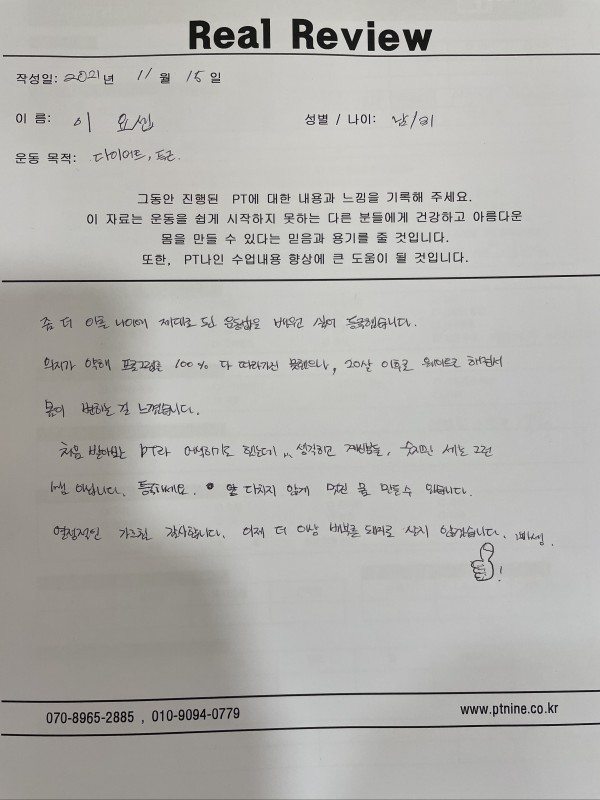 Real Review
작성일: 2021년 11월 15일
이 름: 이 요센
성별 / 나이: 남/31
운동 목적: 다이어트, 등근.
그동안 진행된 PT에 대한 내용과 느낌을 기록해 주세요.
이 자료는 운동을 쉽게 시작하지 못하는 다른 분들에게 건강하고 아름다운
몸을 만들 수 있다는 믿음과 용기를 줄 것입니다.
또한, PT나인 수업내용 향상에 큰 도움이 될 것입니다.
좀 더 이른 나이에 제대로 된 운동법을 배우고 싶어 등록했습니다.
의지가 약해 프로그램을 100% 다 따라가진 못했으나, 20살 이후로 웨이트로 해면서
몸이 변하는 걸 느꼈습니다.
처음 받아보는 PT라 어색하기도 했는데 ... 생각하고 계신분들, 숫자만 세는 그런
아닙니다. 등록하세요. 안 다치지 않게 멋진 몸 만들 수 있습니다.
열정적인 가르침 감사합니다. 이제 더 이상 배부른 돼지로 살지 않겠습니다.
!
070-8965-2885 , 010-9094-0779
www.ptnine.co.kr